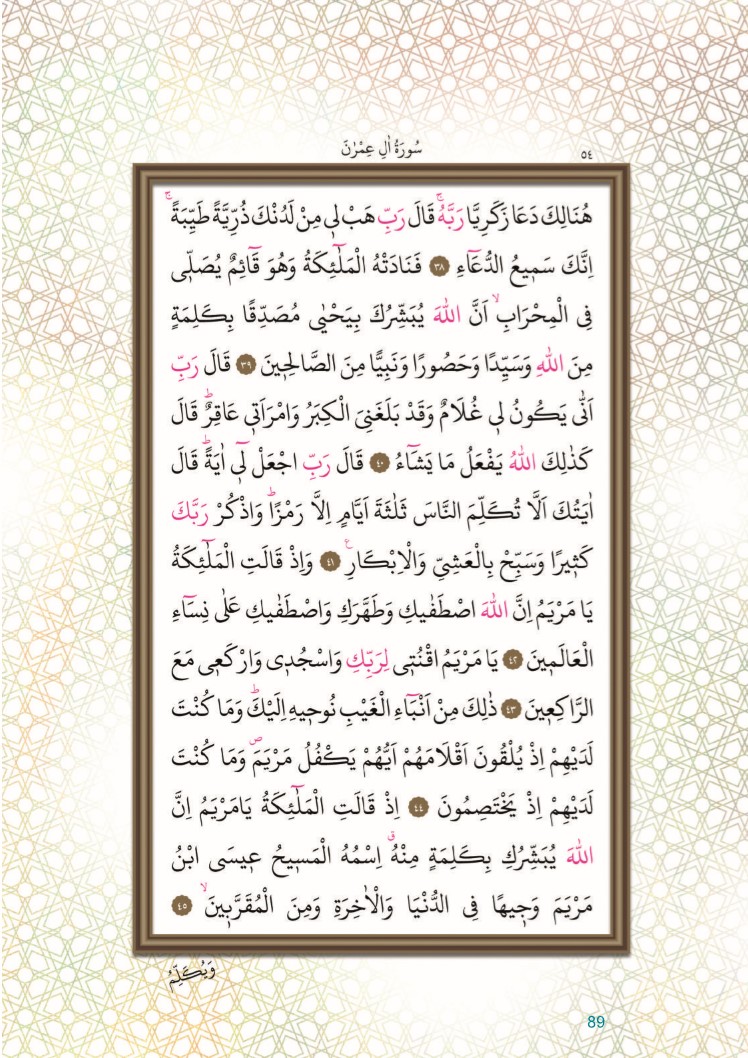 ٥٤
سُورَةُ اٰلِ عِمْرٰنَ
هُنَالِكَ دَعَا زَكَرِيَّا رَبَّهُۚ قَالَ رَبِّ هَبْ ل۪ي مِنْ لَدُنْكَ ذُرِّيَّةً طَيِّبَةًۚ
اِنَّكَ سَم۪يعُ الدُّعَٓاءِ ﴿٣٨﴾ فَنَادَتْهُ الْمَلٰٓئِكَةُ وَهُوَ قَٓائِمٌ يُصَلّ۪ي
فِي الْمِحْرَابِۙ اَنَّ اللّٰهَ يُبَشِّرُكَ بِيَحْيٰى مُصَدِّقًا بِكَلِمَةٍ
مِنَ اللّٰهِ وَسَيِّدًا وَحَصُورًا وَنَبِيًّا مِنَ الصَّالِح۪ينَ ﴿٣٩﴾ قَالَ رَبِّ
اَنّٰى يَكُونُ ل۪ي غُلَامٌ وَقَدْ بَلَغَنِيَ الْكِبَرُ وَامْرَاَت۪ي عَاقِرٌۜ قَالَ
كَذٰلِكَ اللّٰهُ يَفْعَلُ مَا يَشَٓاءُ ﴿٤٠﴾ قَالَ رَبِّ اجْعَلْ ل۪ٓي اٰيَةًۜ قَالَ
اٰيَتُكَ اَلَّا تُكَلِّمَ النَّاسَ ثَلٰثَةَ اَيَّامٍ اِلَّا رَمْزًاۜ وَاذْكُرْ رَبَّكَ
كَث۪يرًا وَسَبِّحْ بِالْعَشِيِّ وَالْاِبْكَارِ۟ ﴿٤١﴾ وَاِذْ قَالَتِ الْمَلٰٓئِكَةُ
يَا مَرْيَمُ اِنَّ اللّٰهَ اصْطَفٰيكِ وَطَهَّرَكِ وَاصْطَفٰيكِ عَلٰى نِسَٓاءِ
الْعَالَم۪ينَ ﴿٤٢﴾ يَا مَرْيَمُ اقْنُت۪ي لِرَبِّكِ وَاسْجُد۪ي وَارْكَع۪ي مَعَ
الرَّاكِع۪ينَ ﴿٤٣﴾ ذٰلِكَ مِنْ اَنْبَٓاءِ الْغَيْبِ نُوح۪يهِ اِلَيْكَۜ وَمَا كُنْتَ
لَدَيْهِمْ اِذْ يُلْقُونَ اَقْلَامَهُمْ اَيُّهُمْ يَكْفُلُ مَرْيَمَۖ وَمَا كُنْتَ
لَدَيْهِمْ اِذْ يَخْتَصِمُونَ ﴿٤٤﴾ اِذْ قَالَتِ الْمَلٰٓئِكَةُ يَامَرْيَمُ اِنَّ
اللّٰهَ يُبَشِّرُكِ بِكَلِمَةٍ مِنْهُۗ اِسْمُهُ الْمَس۪يحُ ع۪يسَى ابْنُ
مَرْيَمَ وَج۪يهًا فِي الدُّنْيَا وَالْاٰخِرَةِ وَمِنَ الْمُقَرَّب۪ينَۙ ﴿٤٥﴾
وَيُكَلِّمُ
89